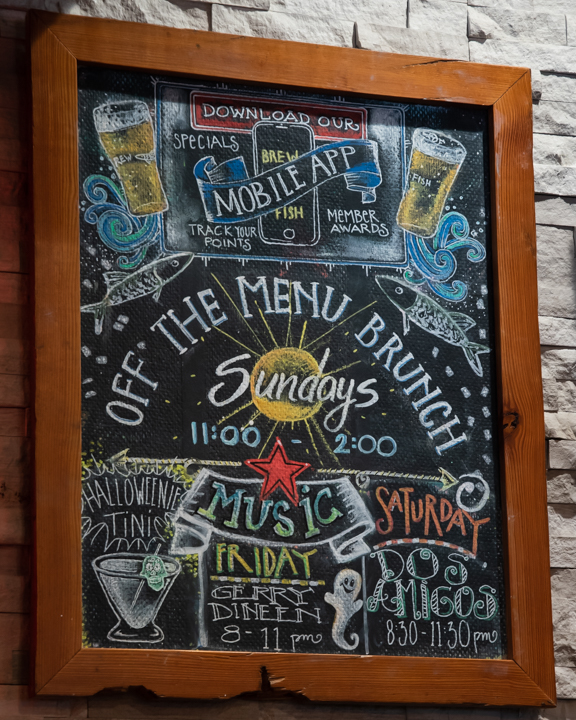 DOWNLOAD OUR
SPECIALS
BREW
MOBILE APP
FISH
TRACK YOUR
POINTS
MEMBER
AWARDS
BREW
FISH
OFF THE MENU BRUNCH
Sundays
11:00 - 2:00
HALLOWEENIE
TINIS
MUSIC
FRIDAY
GERRY
DINEEN
8 - 11 pm
SATURDAY
DOS
AMIGOS
8:30 - 11:30 pm